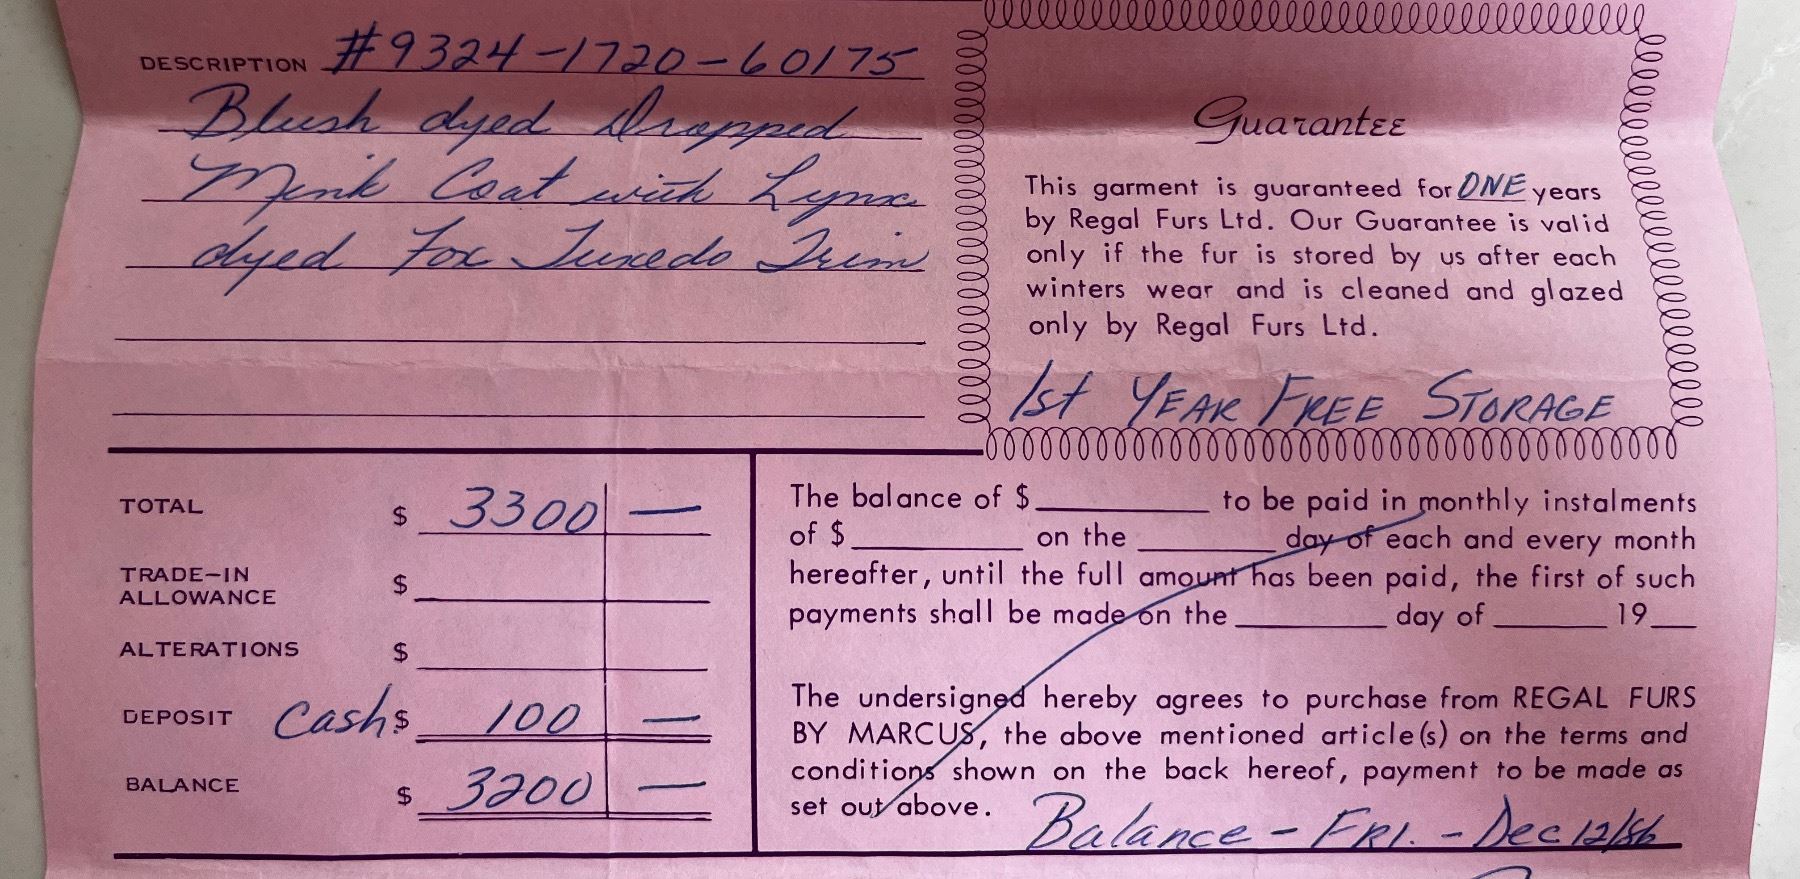 DESCRIPTION #9324-1720-60175
Blush dyed Dropped
Mink Coat with Lynx
dyed Fox Tuxedo Trim
Guarantee
This garment is guaranteed for ONE years
by Regal Furs Ltd. Our Guarantee is valid
only if the fur is stored by us after each
winters wear and is cleaned and glazed
only by Regal Furs Ltd.
1st YEAR FREE STORAGE
TOTAL $ 3300 —
TRADE-IN
ALLOWANCE $
ALTERATIONS $
DEPOSIT Cash $ 100 —
BALANCE $ 3200 —
The balance of $ to be paid in monthly instalments
of $ on the day of each and every month
hereafter, until the full amount has been paid, the first of such
payments shall be made on the day of 19
The undersigned hereby agrees to purchase from REGAL FURS
BY MARCUS, the above mentioned article(s) on the terms and
conditions shown on the back hereof, payment to be made as
set out above.
Balance - FRI. - Dec 12/86